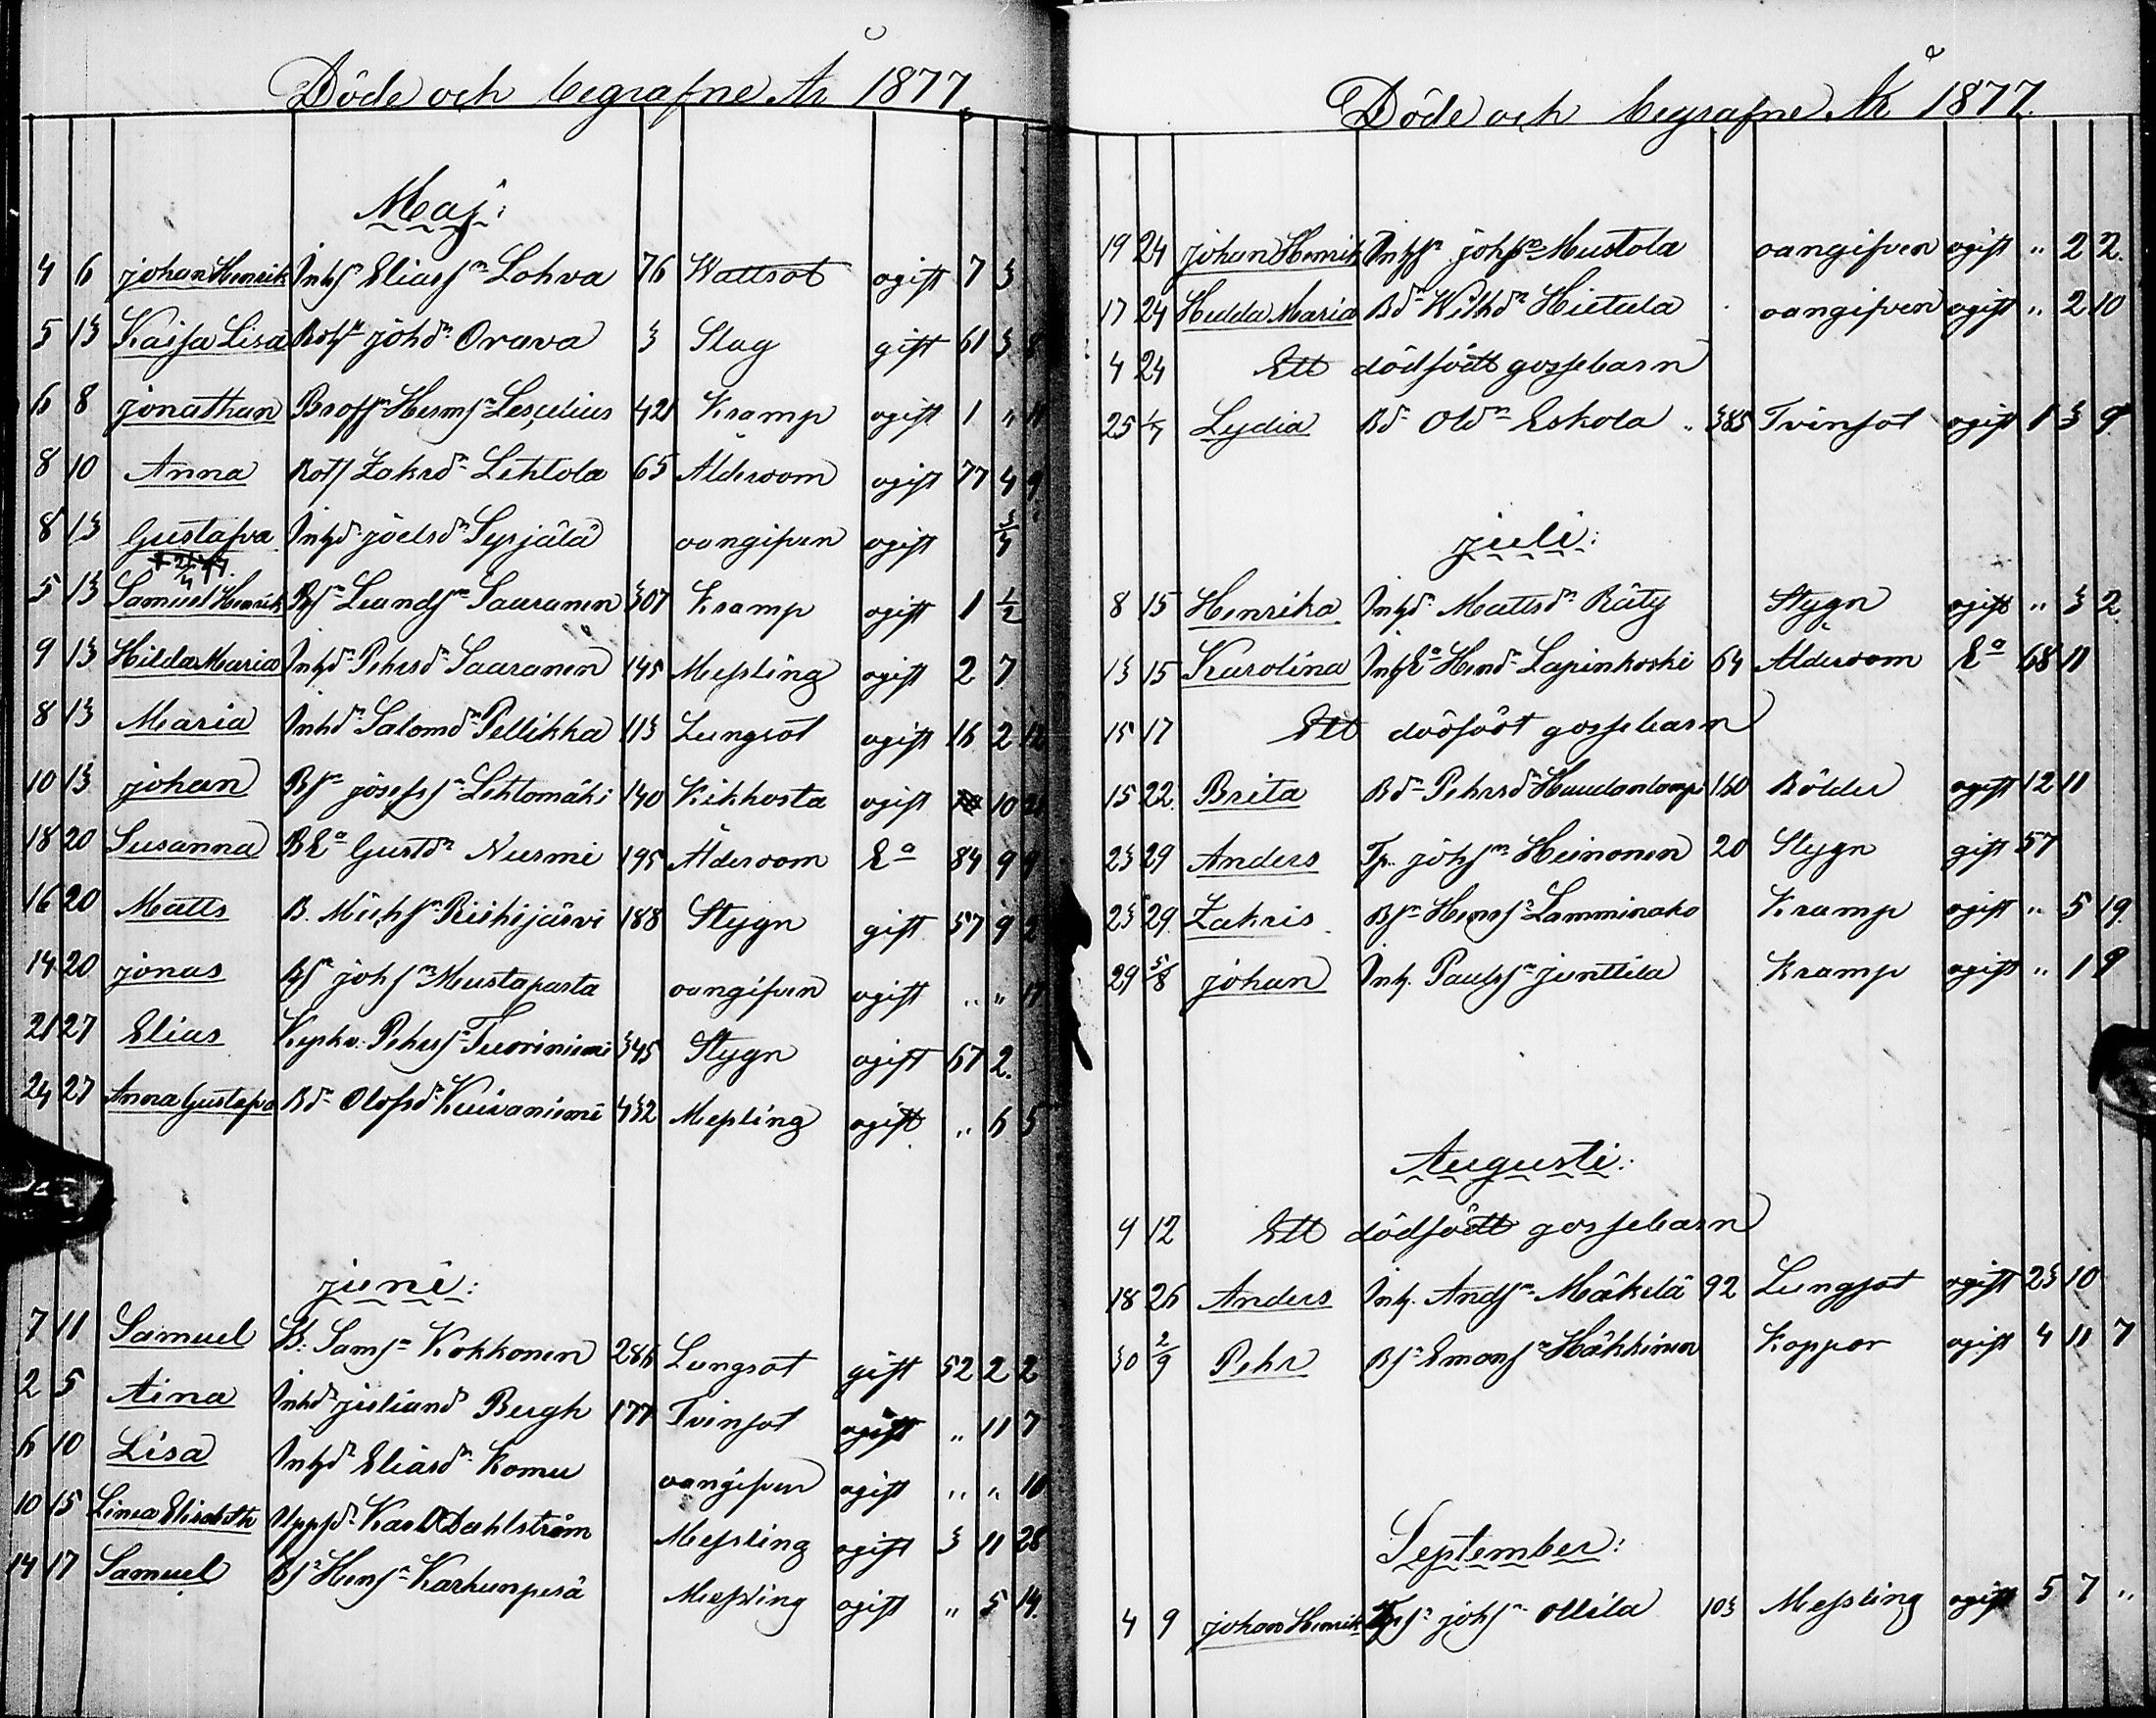 Döde och begrafne År 1877.
Maj:
4 6 Johan Henrik Inhsn Eliassn Lohva 76 Wattsot ogift 7 3
5 13 Kaisa Lisa Rotsn Johdn Orava 3 Slag gift 61 3 8
6 8 Jonathan Hermsn Lescelius 421 Kramp ogift 1 " 11
8 10 Anna Rots Zakrdn Lehtola 65 Ålderdom ogift 77 4 9
8 13 Gustafva Inhdn Joelsdn Syrjälä oangifven ogift 3/4
5 13 Samuel Henrik Bsn Leandsn Sauranen 307 Kramp ogift 1 1/2
9 13 Hilda Maria Inhdn Pehrsdn Saaranen 145 Messling ogift 2 7
8 13 Maria Inhdn Salomdn Pellikka 113 Lungsot ogift 16 2 12
10 13 Johan Bsn Josefssn Lehtomäki 140 Kikhosta ogift 10 21
18 20 Susanna BEa Gustdn Nurmi 195 Ålderdom Ea 84 9 9
16 20 Matts B. Michsn Riihijärvi 188 Stygn gift 57 9 2
14 20 Jonas Bsn Johsn Mustaparta oangifven ogift " " 17
21 27 Elias Pehrsn Tuoriniemi 345 Stygn ogift 67 2.
24 27 Anna Gustafva Bdn Olofsdn Kuivaniemi 432 Messling ogift " 6 5
Juni:
7 11 Samuel B. Samsn Kokkonen 286 Lungsot gift 52 2 2
2 5 Aina Inhdn Juliandn Bergh 177 Tvinsot ogift " 11 7
6 10 Lisa Inhdn Eliasdn Romu oangifven ogift " " 10
10 15 Linea Elisabeth Uppsdn Karl Dahlström Messling ogift 3 11 28
14 17 Samuel Bsn Hensn Karhunpesä Messling ogift " 5 14.
Döde och begrafne År 1877.
19 24 Johan Henrik Inhsn Johsn Mustola oangifven ogift " 2 2.
17 24 Hedda Maria Bdn Wilhdn Hietala oangifven ogift " 2 10
4 24 Ett dödfödt gossebarn
25 1/7 Lydia Bdn Oldn Eskola " 385 Tvinsot ogift 1 3 9.
Juli:
8 15 Henrika Inhdn Mattsdn Räty Stygn ogift " 3 2.
13 15 Karolina InhEa Hendn Lapinkoski 64 Ålderdom Ea 68 11
15 17 Ett dödfödt gossebarn
15 22. Brita Bdn Pehrsdn 160 Bölder ogift 12 11
23 29 Anders Tp. Johsn Heinonen 20 Stygn gift 57
23 29. Zakris Bsn Hensn Lamminaho Kramp ogift " 5 19.
29 5/8 Johan Inh. Paulssn Junttila Kramp ogift " 1 9
Augusti:
9 12 Ett dödfödt gossebarn
18 26 Anders Inh. Andsn Mäkelä 92 Lungsot ogift 23 10
30 2/9 Pehr Bsn Emansn Häkkinen Koppor ogift 4 11 7
September:
4 9 Johan Henrik Tpsn Johsn Ollila 103 Messling ogift 5 7 "